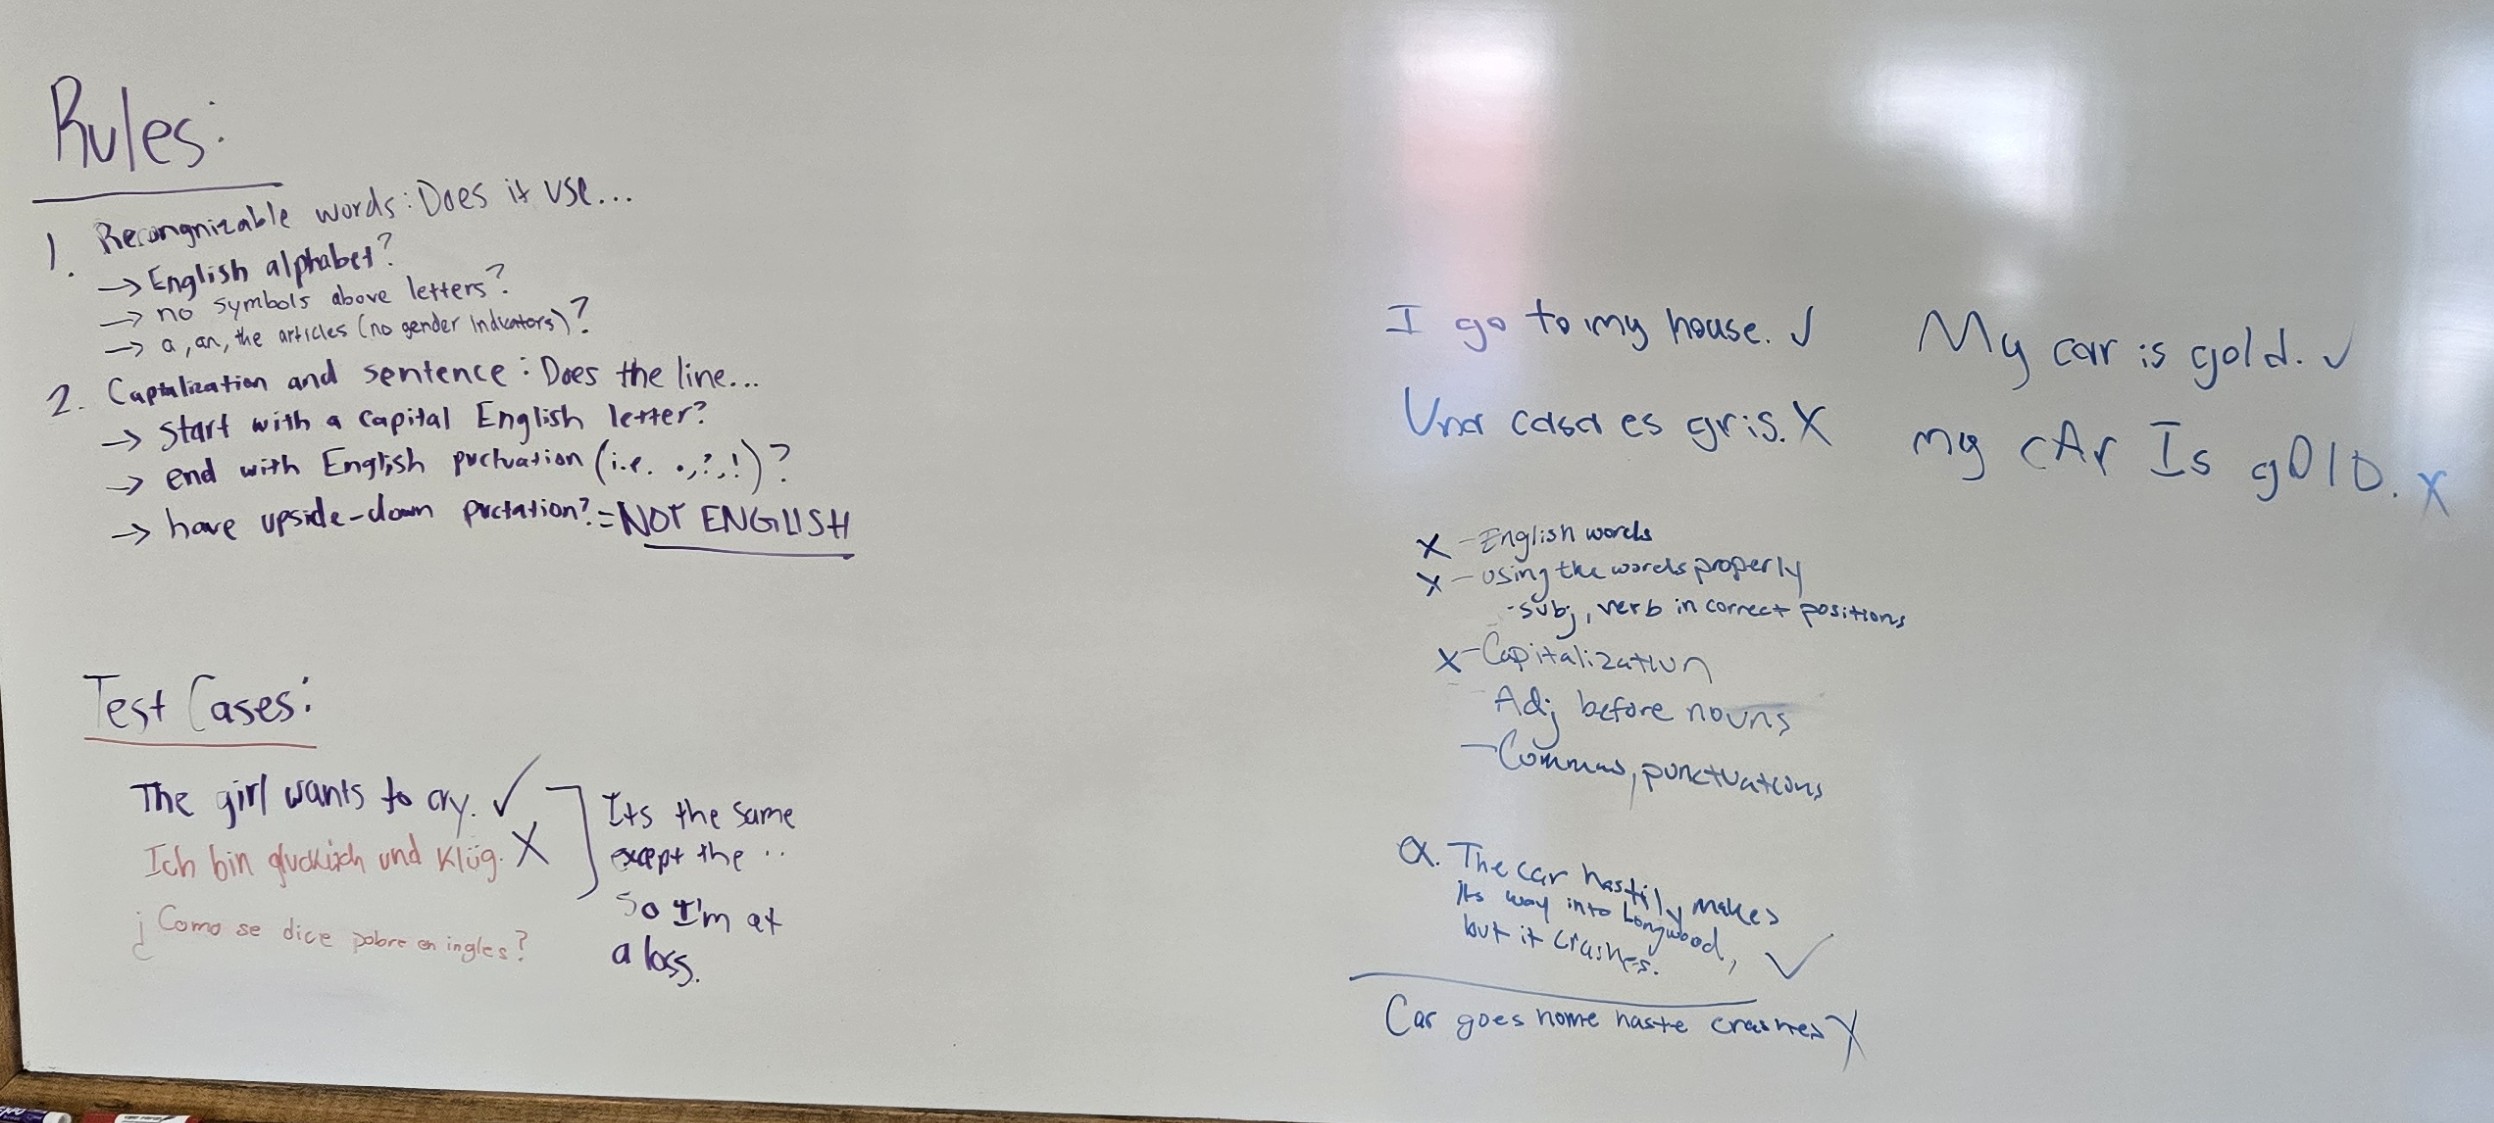 Rules:
1. Recongnizable words: Does it use...
→ English alphabet?
→ no symbols above letters?
→ a, an, the articles (no gender indicators)?
2. Captalization and sentence: Does the line...
→ start with a capital English letter?
→ end with English puctuation (i.e. ., ?, !)?
→ have upside-down puctation? = NOT ENGLISH
Test Cases:
The girl wants to cry. ✓
Ich bin und Klüg. X
¿Como se dice pobre en ingles?
Its the same
except the ..
So I'm at
a loss.
I go to my house. ✓
Una casa es gris. X
My car is gold. ✓
my cAr Is gOlD. X
X - English words
X - using the words properly
- subj, verb in correct positions
X - Capitalization
Adj before nouns
- Commas, punctuations
The car hastily makes
its way into Longwood,
but it crashes. ✓
Car goes home haste crashes X